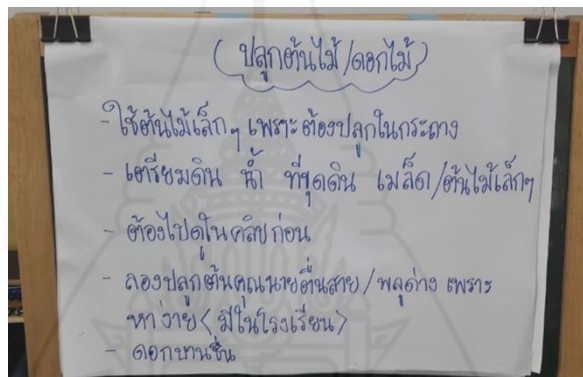 (ปลูกต้นไม้/ดอกไม้)
- ใช้ต้นไม้เล็กๆ เพราะต้องปลูกในกระถาง
- เตรียมดิน น้ำ ที่ขุดดิน เมล็ด/ต้นไม้เล็กๆ
- ต้องไปดูในคลิปก่อน
- ลองปลูกต้นคุณนายตื่นสาย/พลูด่าง เพราะ
หาง่าย<มีในโรงเรียน>
- ดอกบานชื่น